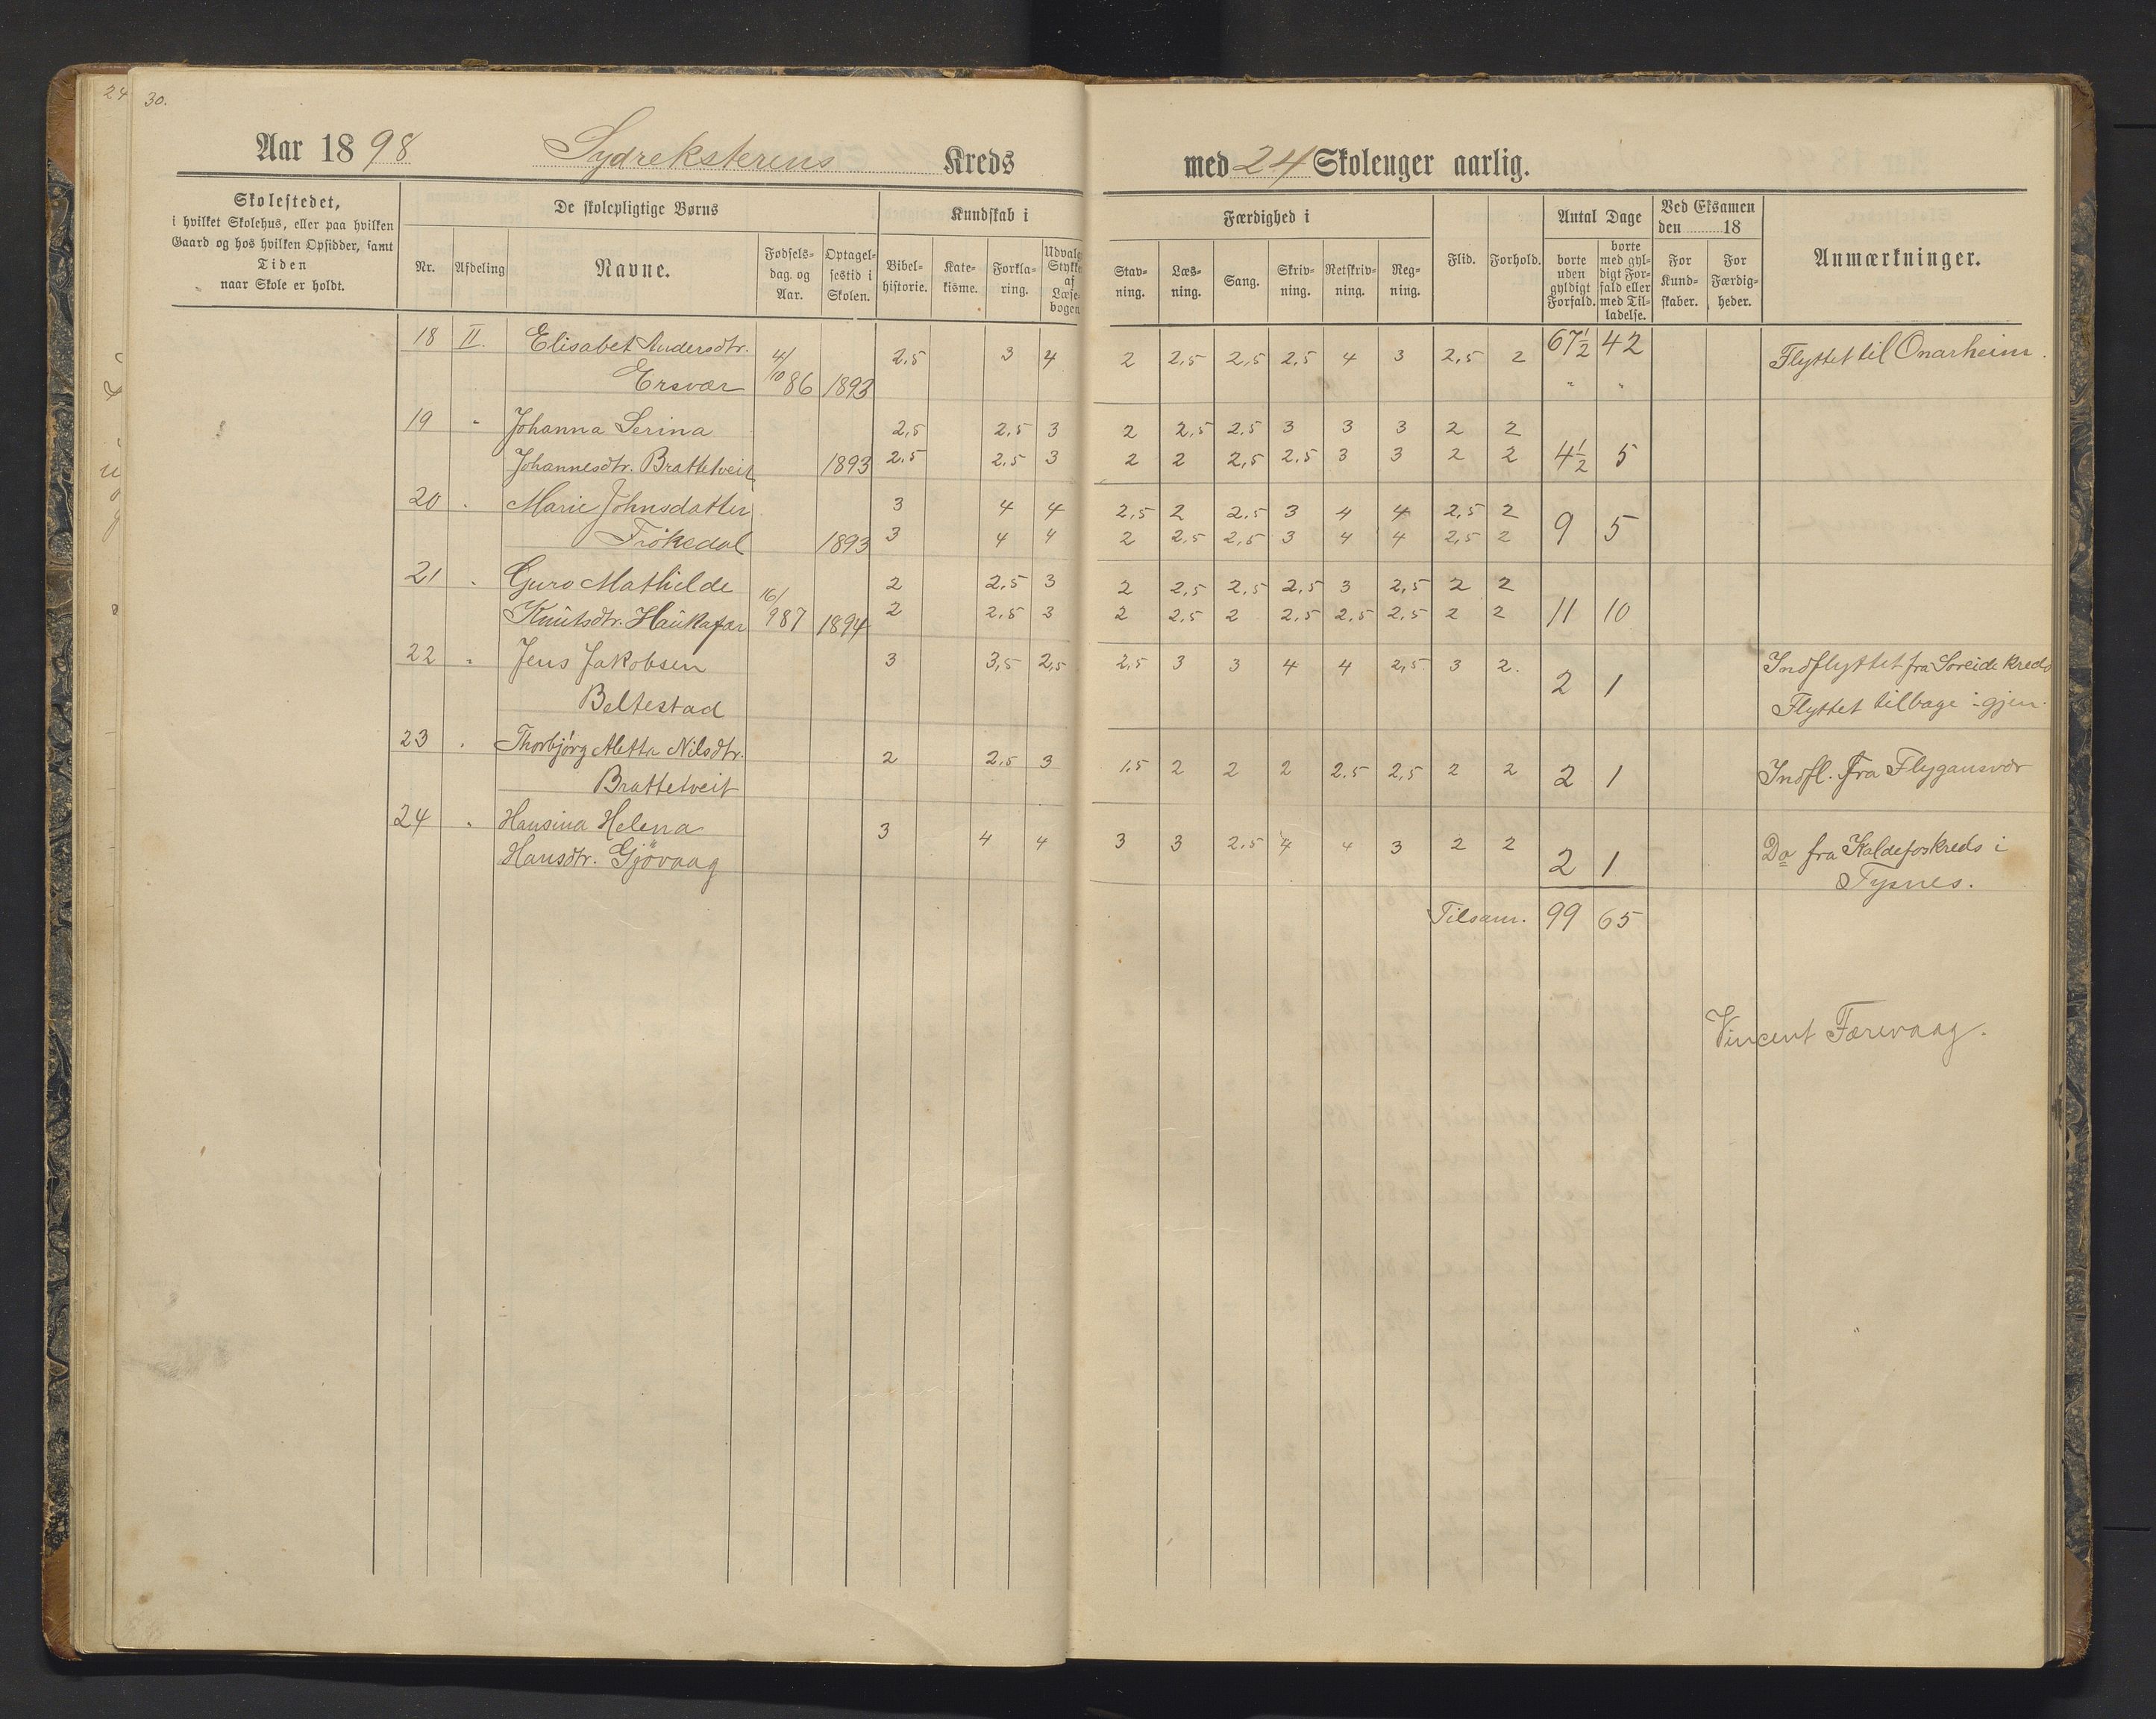 24
30.
Aar 1898 Sydreksterens Kreds med 24 Skoleuger aarlig.
Skolestedet,
i hvilket Skolehus, eller paa hvilken
Gaard og hos hvilken Opsidder, samt
Tiden
naar Skole er holdt.
De skolepligtige Børns
Nr. Afdeling Navne. Fødsels-dag. og Aar. Optagel-sestid i Skolen.
Kundskab i
Bibel-historie. Kate-kisme. Forkla-ring. Udvalg Stykke af Læse-bogen
Færdighed i
Stav-ning. Læs-ning. Sang. Skriv-ning. Retskriv-ning. Reg-ning.
Flid. Forhold.
Antal Dage
borte uden gyldigt Forfald. borte med gyl-digt For-fald eller med Til-ladelse.
Ved Eksamen
den 18
For Kund-skaber. For Færdig-heder.
Anmærkninger.
18 II. Elisabet Andersdtr. 4/10 2,5 3 4 2 2,5 2,5 2,5 4 3 2,5 2 67½ 42 Flyttet til Onarheim.
Ersvær 86 1893 " "
19 " Johanna Serina 2,5 2,5 3 2 2,5 2,5 3 3 3 2 2
Johannesdtr. Brattetveit 1893 2,5 2,5 3 2 2 2,5 2,5 3 3 2 2 4½ 5
20 " Marie Johnsdatter 3 4 4 2,5 2 2,5 3 4 4 2,5 2
Frøkedal 1893 3 4 4 2 2,5 2,5 3 4 4 2,5 2 9 5
21 " Guro Mathilde 16/ 2 2,5 3 2 2,5 2,5 2,5 3 2,5 2 2
Knutsdtr. Haukafær 987 1894 2 2,5 3 2 2,5 2 2,5 2,5 2,5 2 2 11 10
22 " Jens Jakobsen 3 3,5 2,5 2,5 3 3 4 4 2,5 3 2. 2 1 Indflyttet fra Soreide Kreds
Beltestad Flyttet tilbage igjen.
23 " Thorbjørg Aletta Nilsdtr. 2 2,5 3 1,5 2 2 2 2,5 2,5 2 2 2 1 Indfl. fra Flygansvær
Brattetveit
24 " Hansina Helena 3 4 4 3 3 2,5 4 4 3 2 2 2 1 Do fra Kaldefoskreds i
Hansdtr. Gjøvaag Tysnes.
Tilsam. 99 65
Vincent Færevaag.